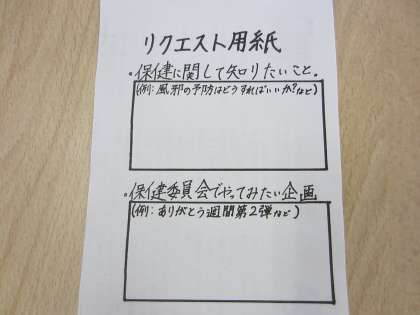 リクエスト用紙
・保健に関して知りたいこと。
(例:風邪の予防はどうすればいいか?など)
・保健委員会でやってみたい企画
(例:ありがとう週間第2弾など)